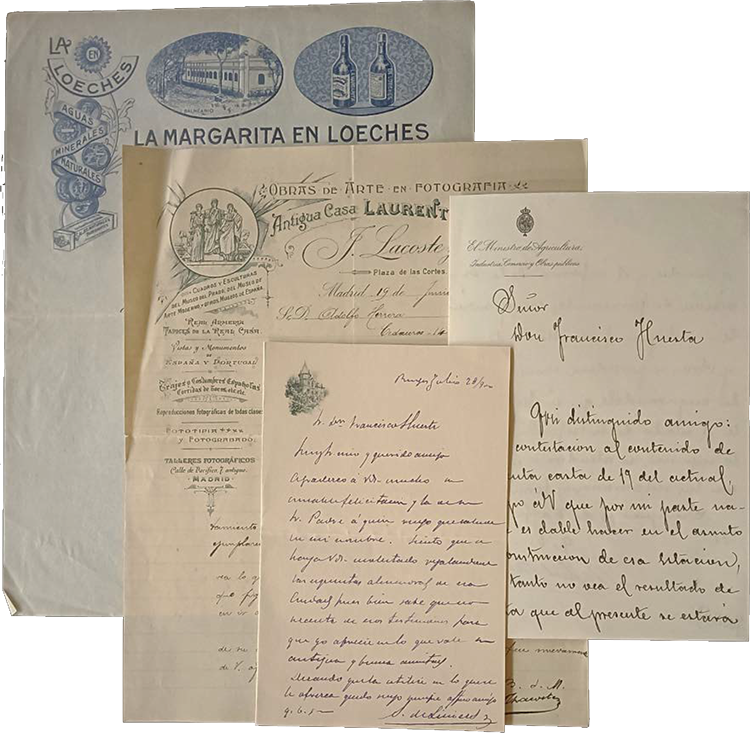 LA
EN
LOECHES
AGUAS
MINERALES
NATURALES
BALNEARIO
LA MARGARITA EN LOECHES
OBRAS DE ARTE EN FOTOGRAFIA
Antigua Casa LAURENT
J. Lacoste
Plaza de las Cortes
Madrid 19 de Junio
Sr. D. Adolfo Herrera
CUADROS Y ESCULTURAS
DEL MUSEO DEL PRADO, DEL MUSEO DE
ARTE MODERNO Y OTROS MUSEOS DE ESPAÑA.
REAL ARMERIA
TAPICES DE LA REAL CASA.
Vistas y Monumentos
DE
ESPAÑA Y PORTUGAL
Trajes y Costumbres Españolas
Corridas de Toros, etc. etc.
Reproducciones fotográficas de todas clases
FOTOTIPIA
Y FOTOGRABADO
TALLERES FOTOGRÁFICOS
Calle de Pacífico, 7 antiguo.
MADRID
ejemplares
El Ministro de Agricultura,
Industria, Comercio y Obras públicas
Señor
Don Francisco Huerta
Mi distinguido amigo:
contestacion al contenido de
carta de 19 del actual,
á V que por mi parte
es dable hacer en el asunto
construccion de esa Estacion,
tanto no vea el resultado de
que al presente se estará
B. L. M.
Julio 28
Sr. Dn. Francisco Huerta
Muy Sr mio y querido amigo
Agradezco á Vd. mucho su
amable felicitacion y la de su
Sr. Padre á quien ruego que salude
en mi nombre. Siento que
haya Vd. molestado
de esa
Ciudad pues bien sabe que no
necesita de esos testimonios para
que yo aprecie en lo que vale su
antigua y buena amistad.
Deseando
le ofrezca quedo suyo siempre affmo amigo